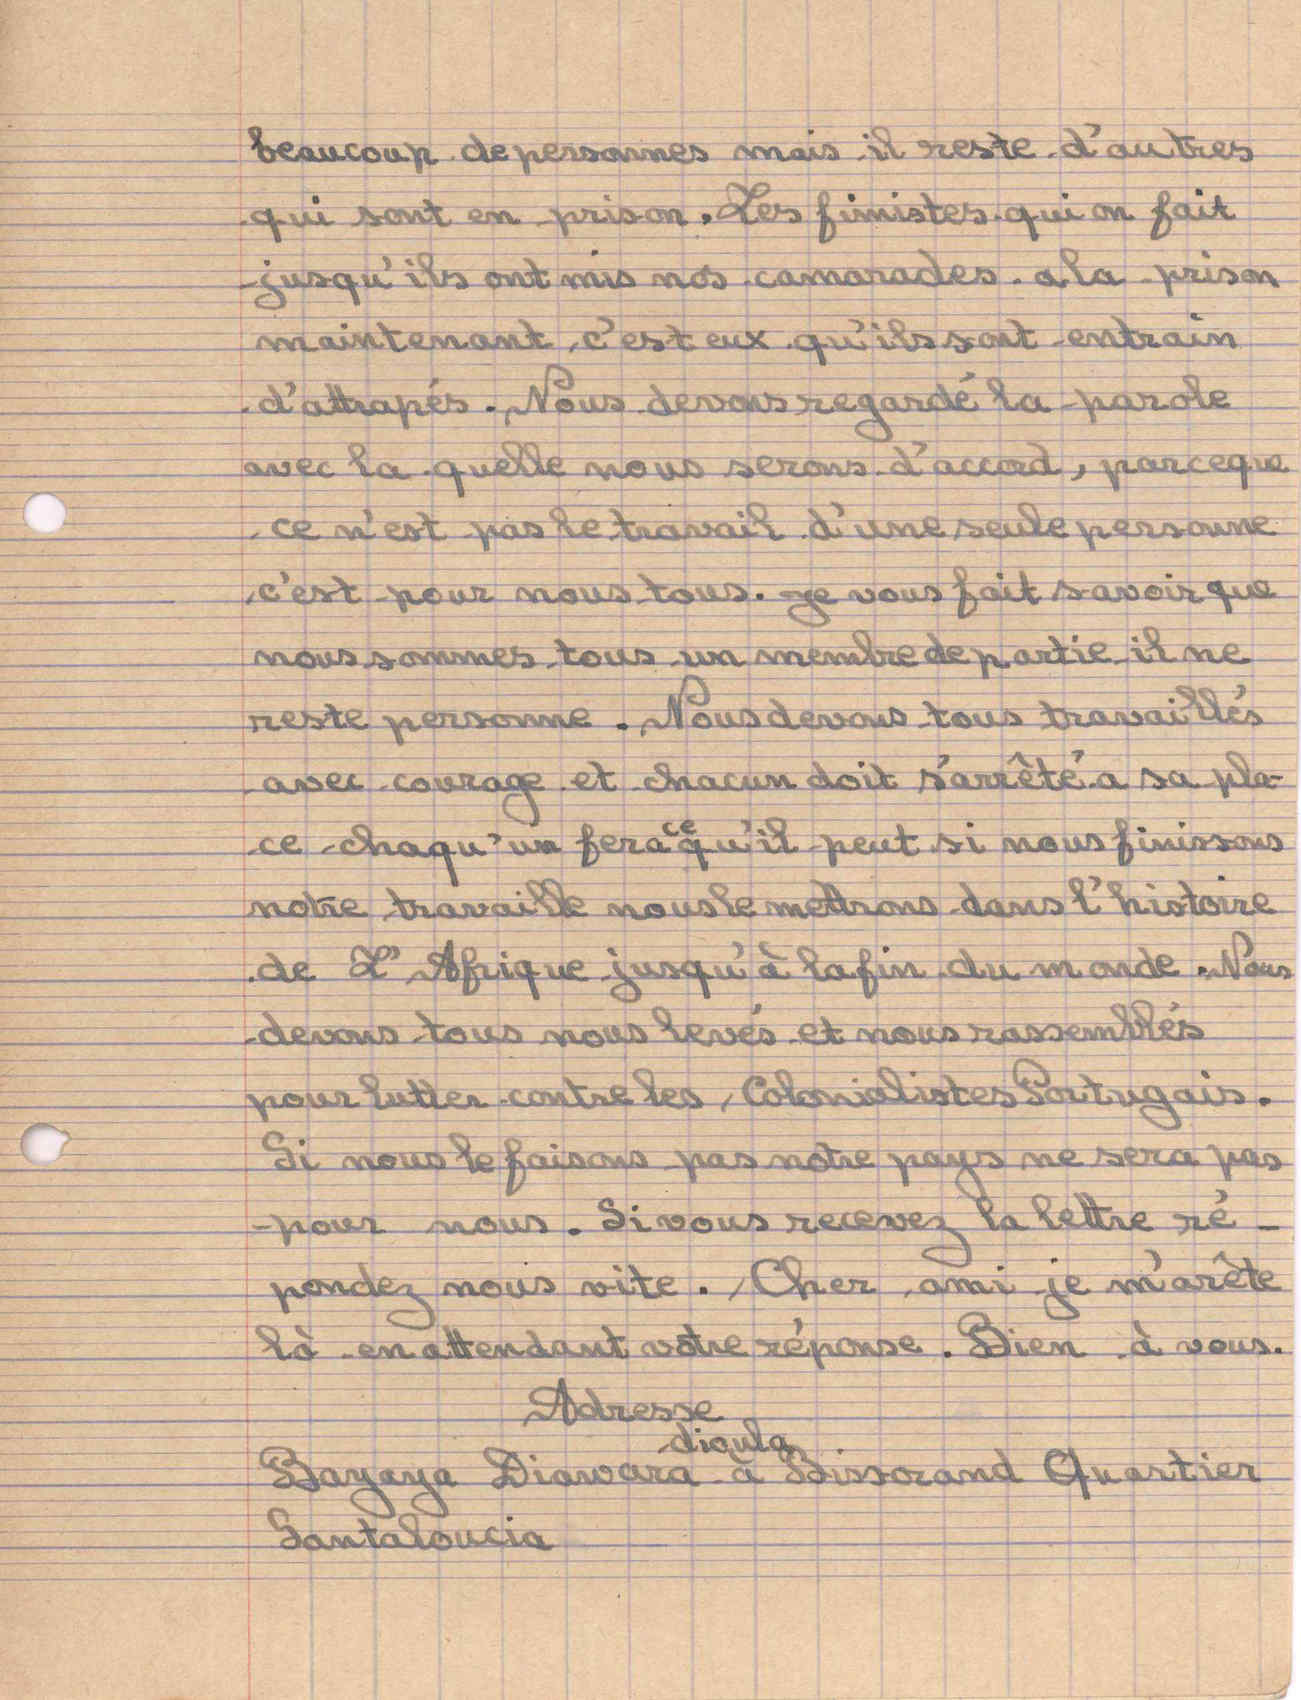 beaucoup de personnes mais il reste d'autres
qui sont en prison. Les finistes qui on fait
jusqu'ils ont mis nos camarades a la prison
maintenant c'est eux qu'ils sont entrain
d'attrapés. Nous devons regardé la parole
avec la quelle nous serons d'accord, parceque
ce n'est pas le travail d'une seule personne
c'est pour nous tous. Je vous fait savoir que
nous sommes tous un membre de partie il ne
reste personne. Nous devons tous travaillés
avec courage et chacun doit s'arrêté a sa pla-
ce chaqu'un fera ce qu'il peut si nous finissons
notre travaille nous le mettrons dans l'histoire
de L'Afrique jusqu'à la fin du monde. Nous
devons tous nous levés et nous rassemblés
pour lutter contre les Colonialistes Portugais.
Si nous le faisons pas notre pays ne sera pas
pour nous. Si vous recevez la lettre ré-
pondez nous vite. Cher ami je m'arête
là en attendant vôtre réponse. Bien à vous.
Adresse
dioula
Bayaya Diawara à Bissorand Quartier
Santaloucia